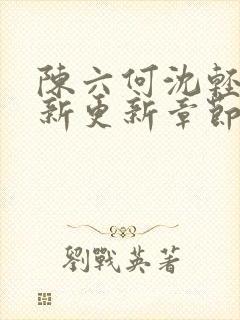 陳六何沈輕
新更新章節
劉戰英著